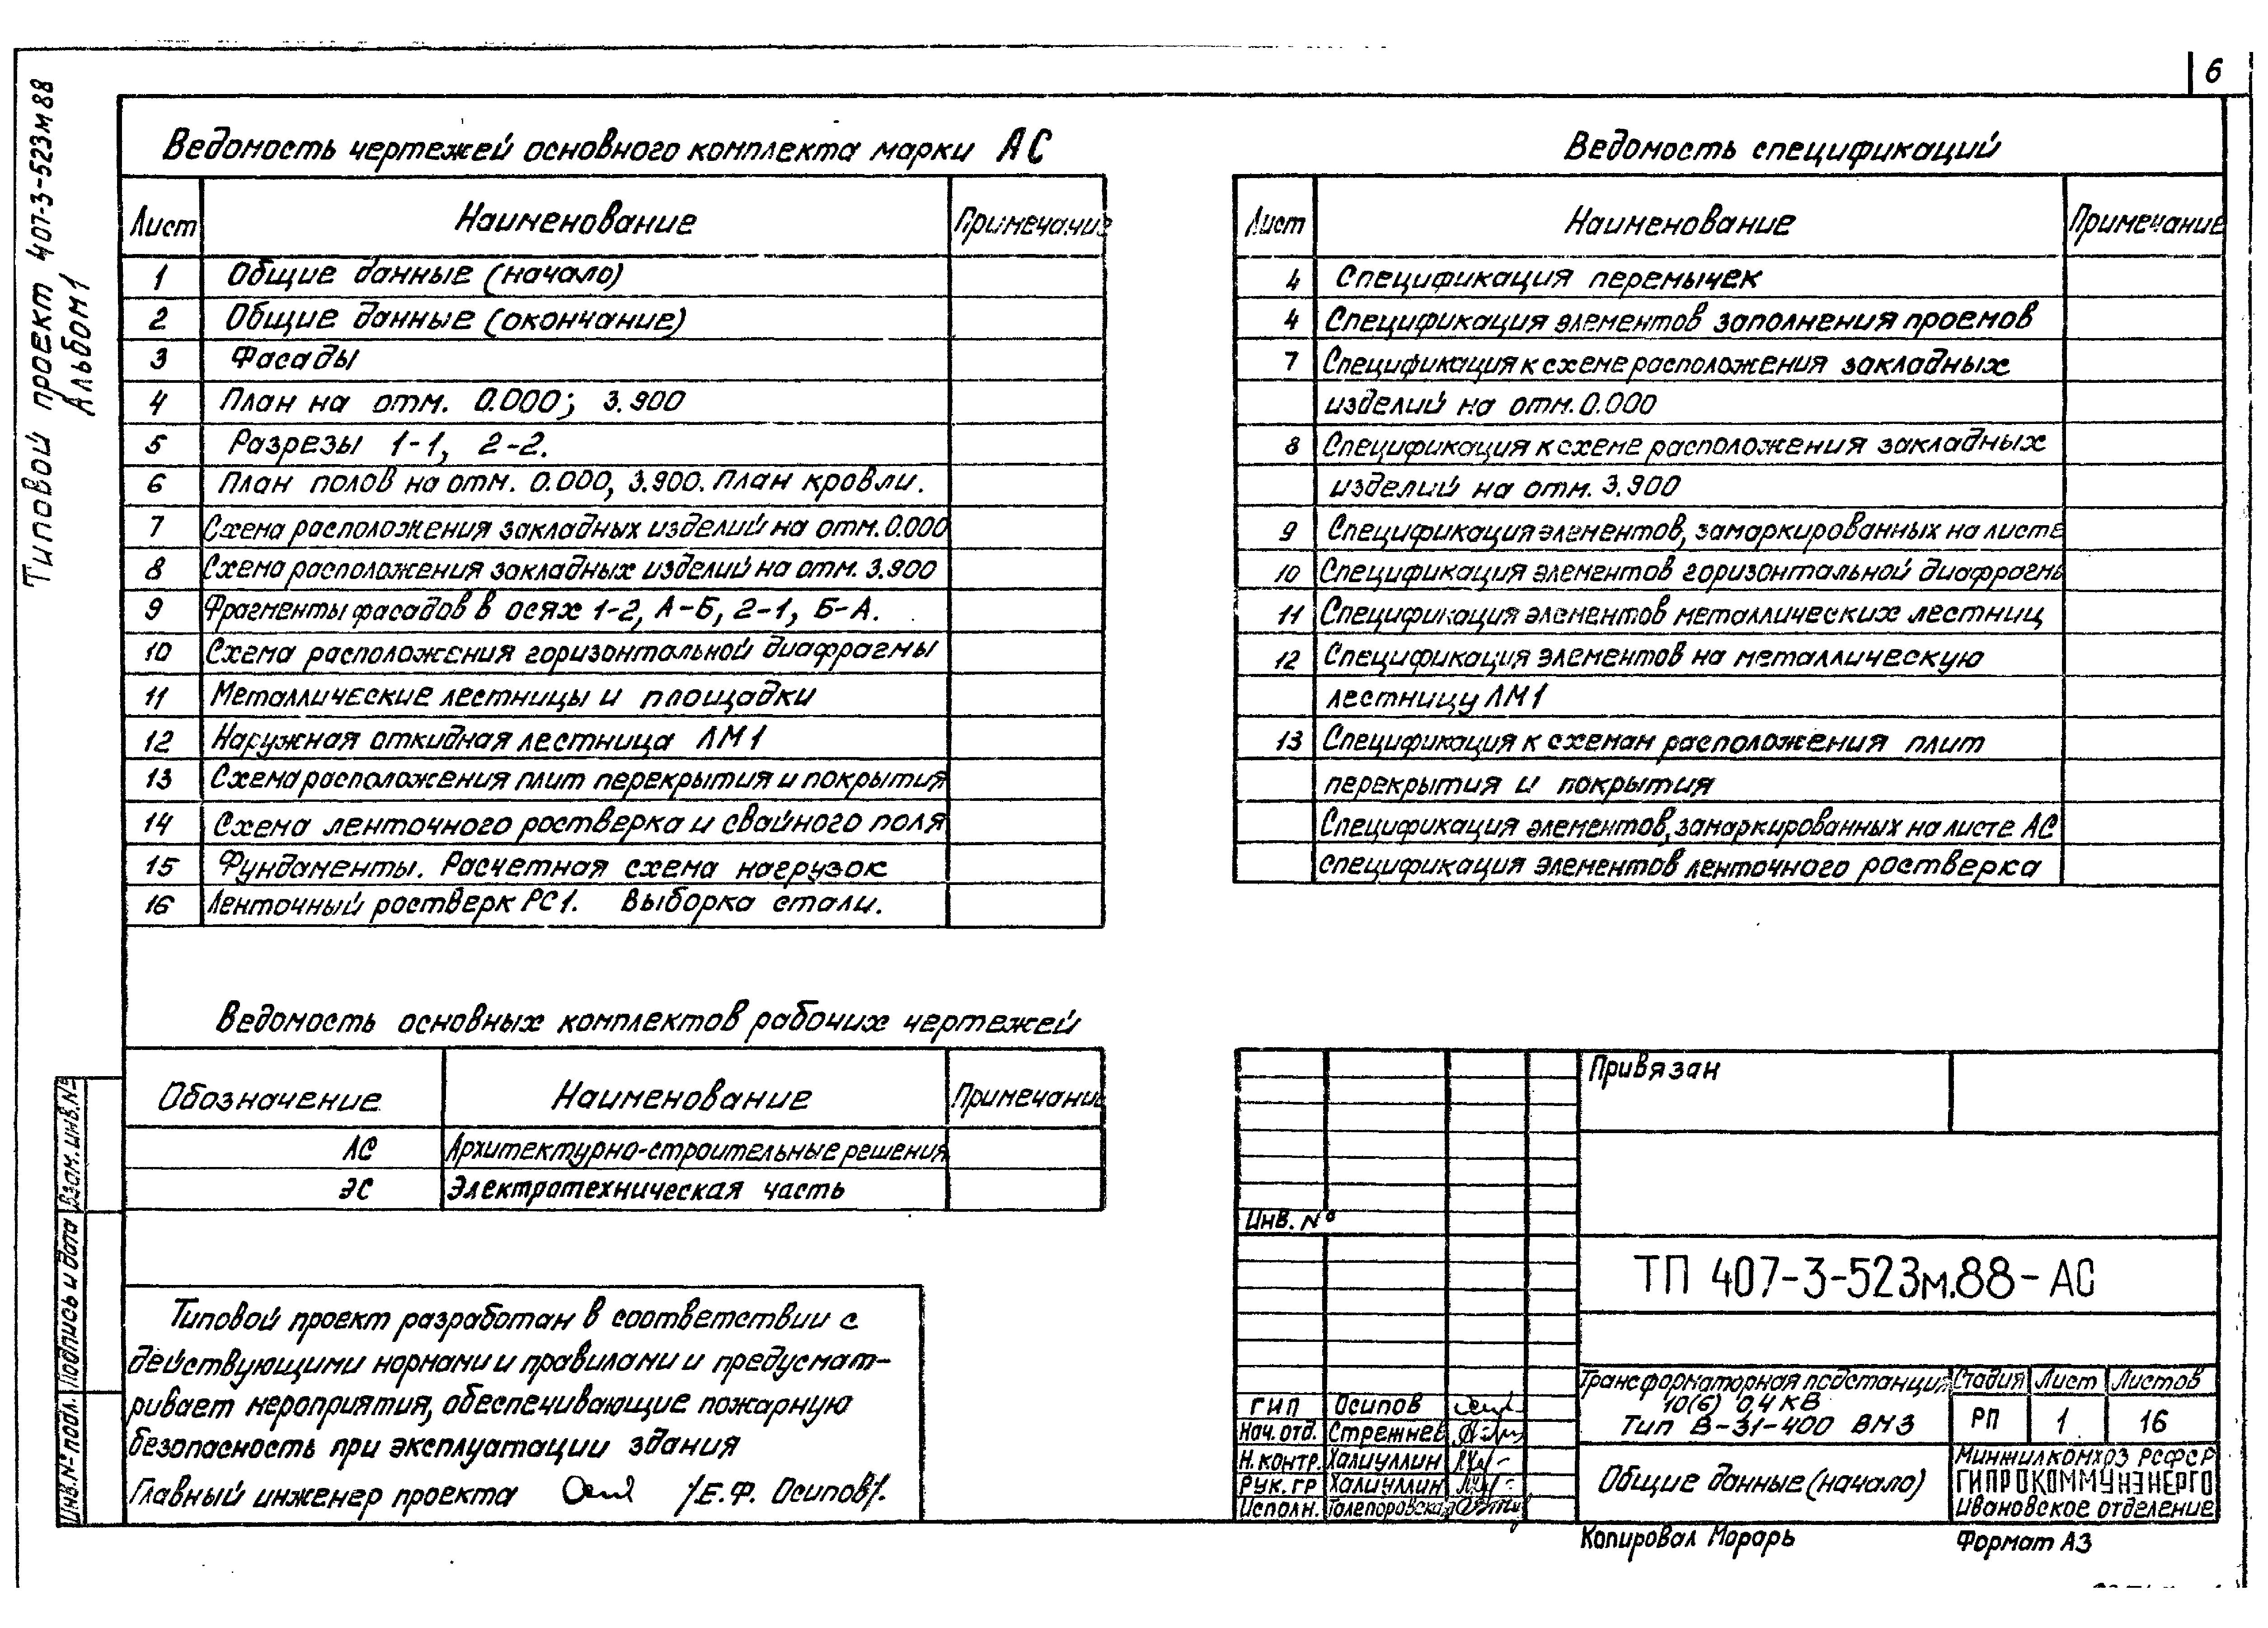 6
Типовой проект 407-3-523м88
Альбом 1
Ведомость чертежей основного комплекта марки АС
Лист Наименование Примечание
1 Общие данные (начало)
2 Общие данные (окончание)
3 Фасады
4 План на отм. 0.000; 3.900
5 Разрезы 1-1, 2-2.
6 План полов на отм. 0.000, 3.900. План кровли.
7 Схема расположения закладных изделий на отм. 0.000
8 Схема расположения закладных изделий на отм. 3.900
9 Фрагменты фасадов в осях 1-2, А-Б, 2-1, Б-А.
10 Схема расположения горизонтальной диафрагмы
11 Металлические лестницы и площадки
12 Наружная откидная лестница ЛМ1
13 Схема расположения плит перекрытия и покрытия
14 Схема ленточного ростверка и свайного поля
15 Фундаменты. Расчетная схема нагрузок
16 Ленточный ростверк РС1. Выборка стали.
Ведомость спецификаций
Лист Наименование Примечание
4 Спецификация перемычек
4 Спецификация элементов заполнения проемов
7 Спецификация к схеме расположения закладных
изделий на отм. 0.000
8 Спецификация к схеме расположения закладных
изделий на отм. 3.900
9 Спецификация элементов, замаркированных на листе
10 Спецификация элементов горизонтальной диафрагмы
11 Спецификация элементов металлических лестниц
12 Спецификация элементов на металлическую
лестницу ЛМ1
13 Спецификация к схемам расположения плит
перекрытия и покрытия
Спецификация элементов, замаркированных на листе АС
спецификация элементов ленточного ростверка
Ведомость основных комплектов рабочих чертежей
Обозначение Наименование Примечание
АС Архитектурно-строительные решения
ЭС Электротехническая часть
Типовой проект разработан в соответствии с
действующими нормами и правилами и предусмат-
ривает мероприятия, обеспечивающие пожарную
безопасность при эксплуатации здания
Главный инженер проекта /Е.Ф. Осипов/.
Взам. инв. №
Подпись и дата
Инв. № подл.
Привязан
Инв. №
ТП 407-3-523м.88-АС
Трансформаторная подстанция
10(6) 0,4 кВ
Тип В-31-400 ВМЗ
Стадия Лист Листов
РП 1 16
ГИП Осипов
Нач. отд. Стрежнев
Н. контр. Халиуллин
Рук. гр Халиуллин
Исполн.
Общие данные (начало)
Минжилкомхоз РСФСР
ГИПРОКОММУНЭНЕРГО
Ивановское отделение
Копировал Морарь
Формат А3